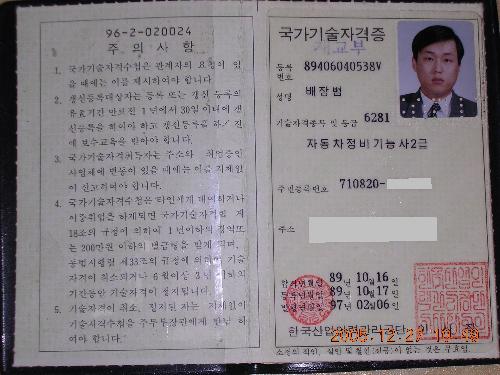 96-2-020024
주 의 사 항
1. 국가기술자격수첩은 관계자의 요청이 있
을 때에는 이를 제시하여야 합니다.
2. 갱신등록대상자는 등록 또는 갱신 등록의
유효기간 만료전 1년에서 30일 이내에 갱
신등록을 하여야 하고 갱신등록을 하기 전
에 보수교육을 받아야 합니다.
3. 국가기술자격취득자는 주소와 취업중인
사업체에 변동이 있을 때에는 이를 지체없
이 신고하여야 합니다.
4. 국가기술자격수첩은 타인에게 대여하거나
이중취업을 하게되면 국가기술자격법 제
18조의 규정에 의하여 1년이하의 징역또
는 200만원 이하의 벌금형을 받게 되며,
동법시행령 제33조의 규정에 의하여 기술
자격이 취소되거나 6월이상 3년 이하의
기간동안 기술자격이 정지됩니다.
5. 기술자격이 취소, 정지된 자는 지체없이
기술자격수첩을 주무부장관에게 반납 하
여야 합니다.
국가기술자격증
등록번호 89406040538V
성명 배장범
기술자격종목 및 등급 6281
자동차정비기능사2급
주민등록번호 710820-
주소
합격년월일 89년 10월 16일
등록년월일 89년 10월 17일
발급년월일 97년 02월 06일
한국산업인력관리공단
2005.12.27
소정의 직인, 철인 및
없는 것은 무효임.